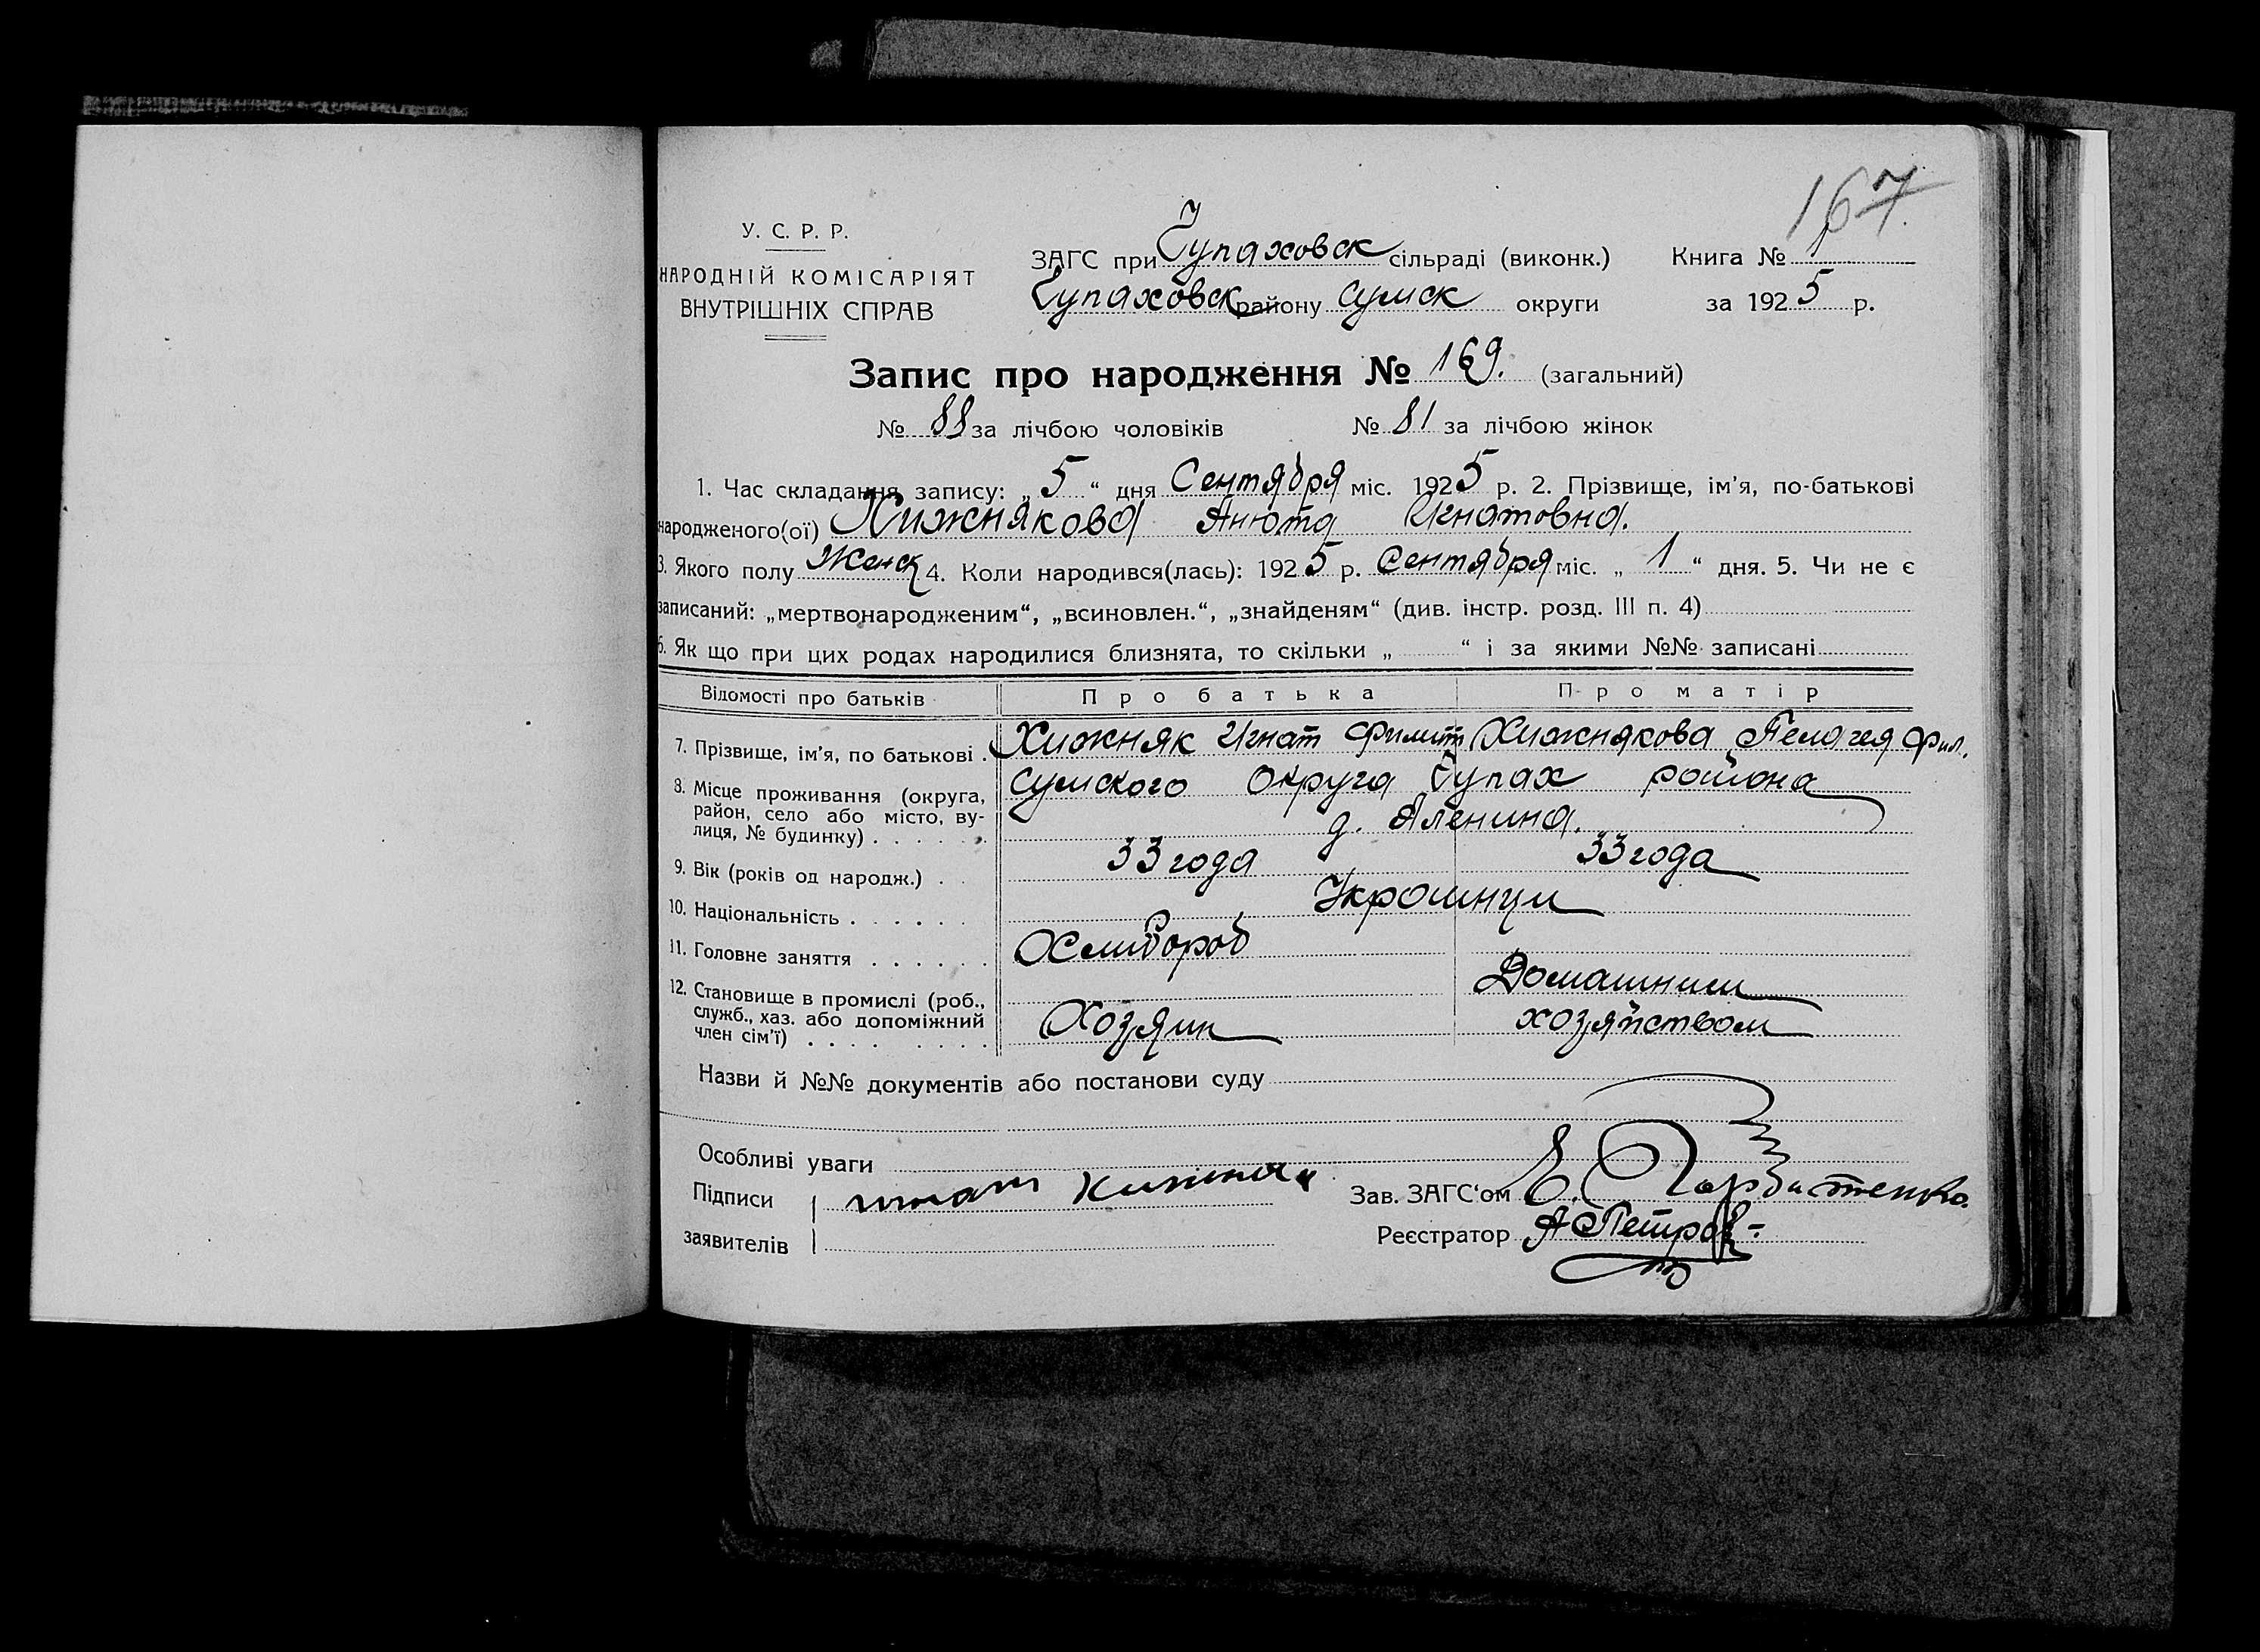 167
У. С. Р. Р.
НАРОДНІЙ КОМІСАРІЯТ
ВНУТРІШНІХ СПРАВ
ЗАГС при Чупаховск сільраді (виконк.) Книга № 1
Чупаховск району Сумск округи за 1925 р.
Запис про народження № 169. (загальний)
№ 88 за лічбою чоловіків № 81 за лічбою жінок
1. Час складання запису: „5“ дня Сентября міс. 1925 р. 2. Прізвище, ім’я, по-батькові
народженого(ої) Хижнякова Анюта Игнатовна.
3. Якого полу Женск 4. Коли народився(лась): 1925 р. Сентября міс. „1“ дня. 5. Чи не є
записаний: „мертвонародженим“, „всиновлен.“, „знайденям“ (див. інстр. розд. III п. 4)
6. Як що при цих родах народилися близнята, то скільки „ “ і за якими №№ записані
Відомості про батьків Про батька Про матір
7. Прізвище, ім’я, по батькові . Хижняк Игнат Филип Хижнякова Пелагея Фил.
8. Місце проживання (округа, Сумского Округа Чупах района
район, село або місто, ву-
лиця, № будинку) . . . . . . д. Аленина.
9. Вік (років од народж.) . . 33 года 33 года
10. Національність . . . . . . Украинци
11. Головне заняття . . . . . . Хлибороб
12. Становище в промислі (роб., Домашним
служб., хаз. або допоміжний
член сім’ї) . . . . . . . . Хозяин хозяйством
Назви й №№ документів або постанови суду
Особливі уваги
Підписи игнат хижняк Зав. ЗАГС‘ом Е.
заявителів Реєстратор А Петров